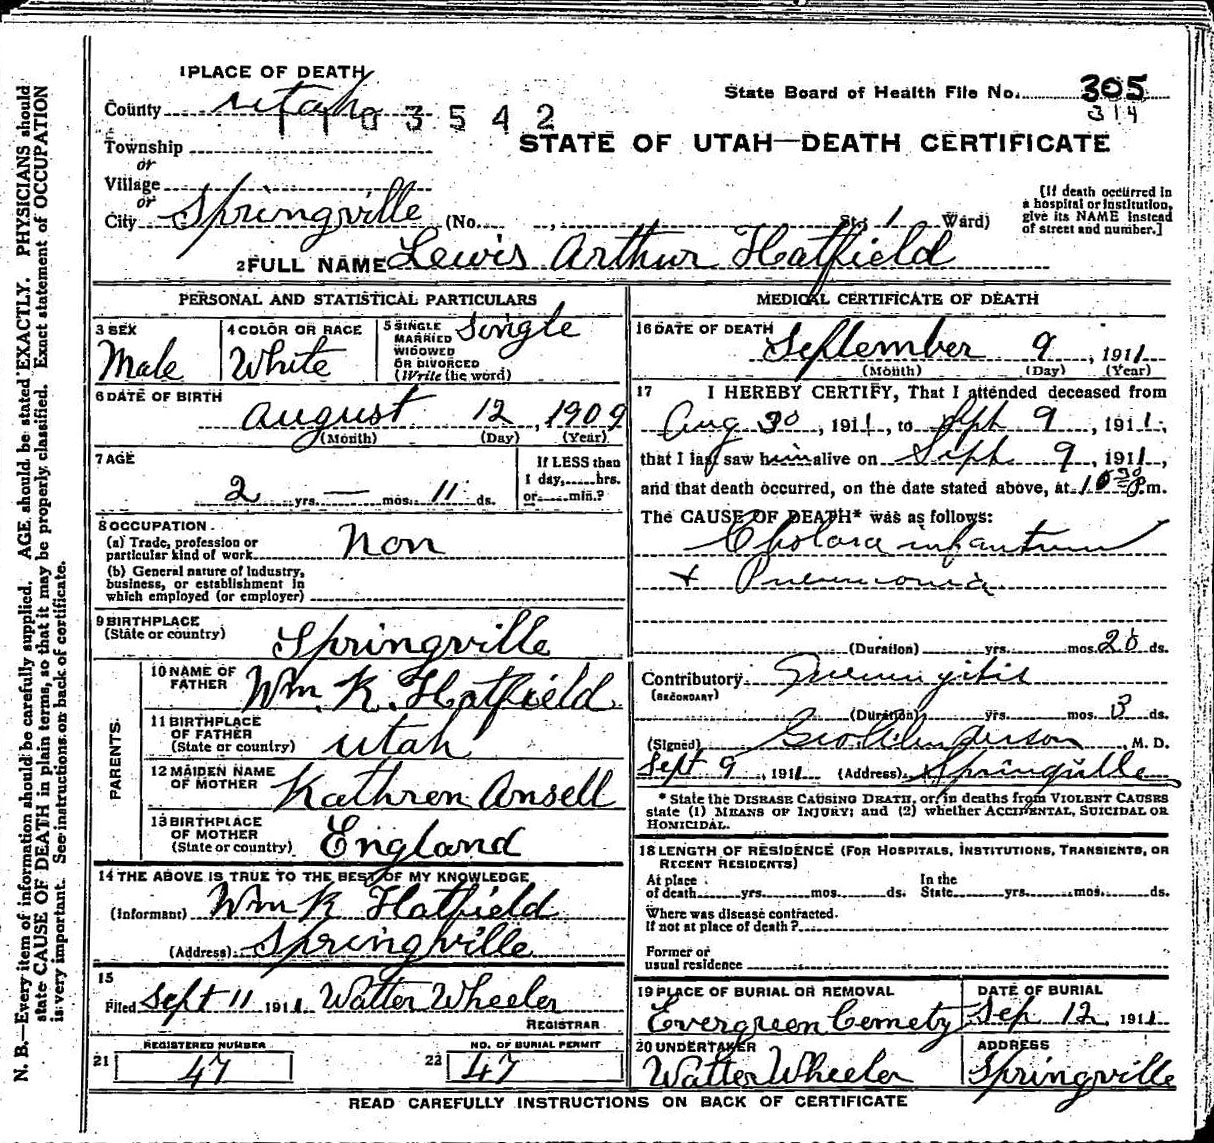 1 PLACE OF DEATH
County Utah
1103542
State Board of Health File No. 305
314
STATE OF UTAH—DEATH CERTIFICATE
Township
or
Village
or
City Springville (No. , St.; 1 Ward)
[If death occurred in a hospital or institution, give its NAME instead of street and number.]
2 FULL NAME Lewis Arthur Hatfield
PERSONAL AND STATISTICAL PARTICULARS
3 SEX Male
4 COLOR OR RACE White
5 SINGLE MARRIED WIDOWED OR DIVORCED (Write the word) Single
6 DATE OF BIRTH
August 12, 1909
(Month) (Day) (Year)
7 AGE
2 yrs. — mos. 11 ds.
If LESS than 1 day, hrs. or min.?
8 OCCUPATION
(a) Trade, profession or particular kind of work Non
(b) General nature of Industry, business, or establishment in which employed (or employer)
9 BIRTHPLACE (State or country) Springville
PARENTS
10 NAME OF FATHER Wm. K. Hatfield
11 BIRTHPLACE OF FATHER (State or country) Utah
12 MAIDEN NAME OF MOTHER Kathren Ansell
13 BIRTHPLACE OF MOTHER (State or country) England
14 THE ABOVE IS TRUE TO THE BEST OF MY KNOWLEDGE
(Informant) Wm K Hatfield
(Address) Springville
15
Filed Sept 11 1911 Walter Wheeler
REGISTRAR
21 REGISTERED NUMBER 47
22 NO. OF BURIAL PERMIT 47
MEDICAL CERTIFICATE OF DEATH
16 DATE OF DEATH
September 9, 1911
(Month) (Day) (Year)
17 I HEREBY CERTIFY, That I attended deceased from
Aug 30, 1911, to Sept 9, 1911,
that I last saw him alive on Sept 9, 1911,
and that death occurred, on the date stated above, at 10 30 P.m.
The CAUSE OF DEATH* was as follows:
Cholara infantum
+ Pneumonia
(Duration) yrs. mos. 20 ds.
Contributory (SECONDARY) Meningitis
(Duration) yrs. mos. 3 ds.
(Signed) Geo Anderson, M. D.
Sept 9, 1911 (Address) Springville
* State the DISEASE CAUSING DEATH, or, in deaths from VIOLENT CAUSES
state (1) MEANS OF INJURY; and (2) whether ACCIDENTAL, SUICIDAL OR
HOMICIDAL.
18 LENGTH OF RESIDENCE (FOR HOSPITALS, INSTITUTIONS, TRANSIENTS, OR
RECENT RESIDENTS)
At place of death yrs. mos. ds. In the State yrs. mos. ds.
Where was disease contracted.
If not at place of death?
Former or
usual residence
19 PLACE OF BURIAL OR REMOVAL Evergreen Cemety
DATE OF BURIAL Sep 12, 1911
20 UNDERTAKER Walter Wheeler
ADDRESS Springville
READ CAREFULLY INSTRUCTIONS ON BACK OF CERTIFICATE
N. B.—Every item of information should be carefully supplied. AGE should be stated EXACTLY. PHYSICIANS should
state CAUSE OF DEATH in plain terms, so that it may be properly classified. Exact statement of OCCUPATION
is very important. See instructions on back of certificate.